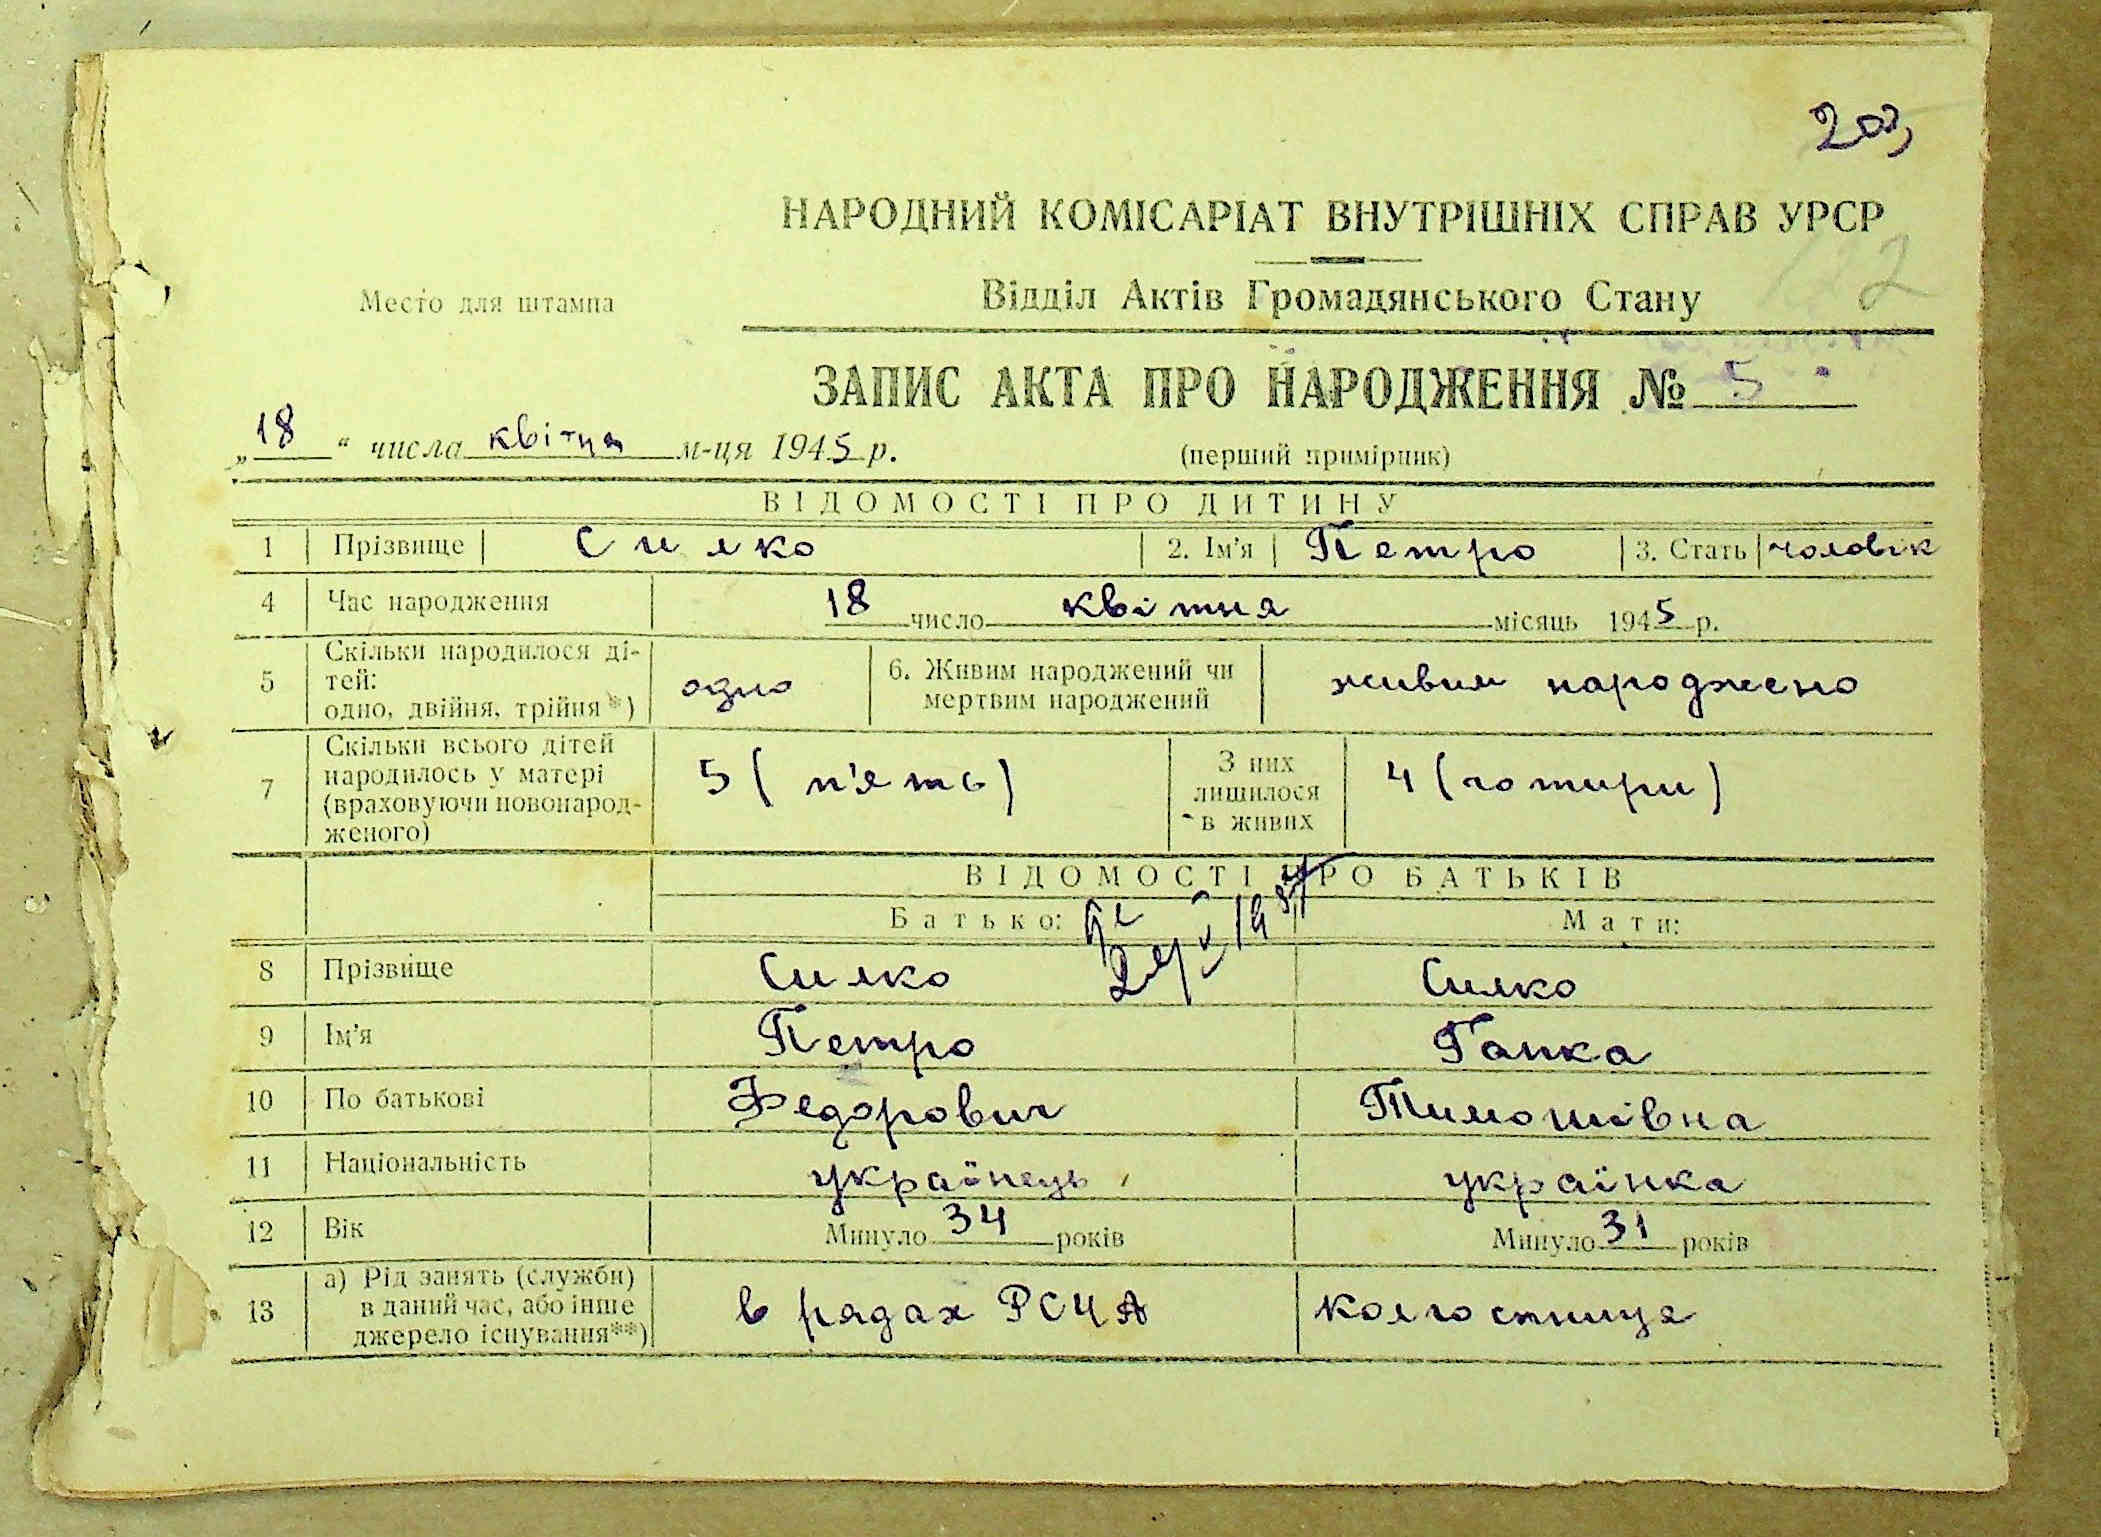 203
НАРОДНИЙ КОМІСАРІАТ ВНУТРІШНІХ СПРАВ УРСР
Место для штампа
Відділ Актів Громадянського Стану
2
ЗАПИС АКТА ПРО НАРОДЖЕННЯ № 5
„18“ числа квітня м-ця 1945 р.
(перший примірник)
ВІДОМОСТІ ПРО ДИТИНУ
1 Прізвище Силко 2. Ім'я Петро 3. Стать чоловік
4 Час народження 18 число квітня місяць 1945 р.
5 Скільки народилося ді-
тей:
одно, двійня, трійня*) одно 6. Живим народжений чи
мертвим народжений живим народжено
7 Скільки всього дітей
народилось у матері
(враховуючи новонарод-
женого) 5 (п'ять) З них
лишилося
в живих 4 (чотири)
ВІДОМОСТІ ПРО БАТЬКІВ
Батько: Мати:
8 Прізвище Силко Силко
9 Ім'я Петро Гапка
10 По батькові Федорович Тимошівна
11 Національність українець українка
12 Вік Минуло 34 років Минуло 31 років
13 а) Рід занять (служби)
в даний час, або інше
джерело існування**) в рядах РСЧА колгоспниця